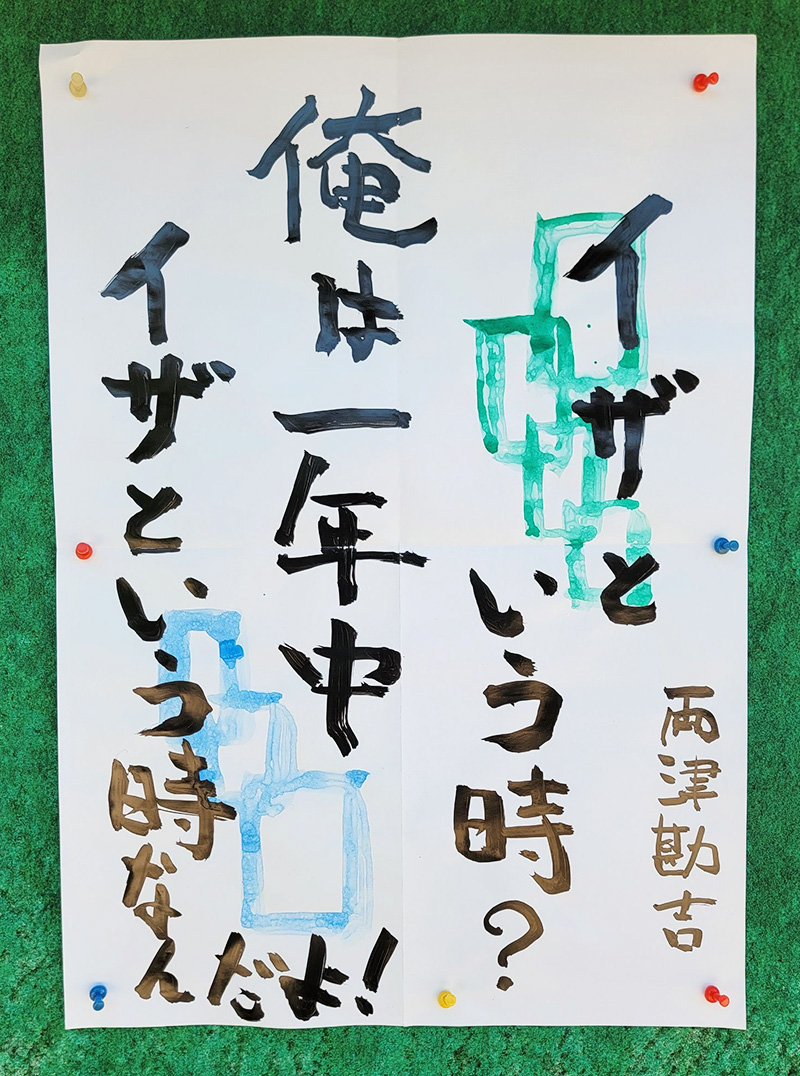 イザと
いう時？
俺は一年中
イザという時なん
だよ！
両津勘吉